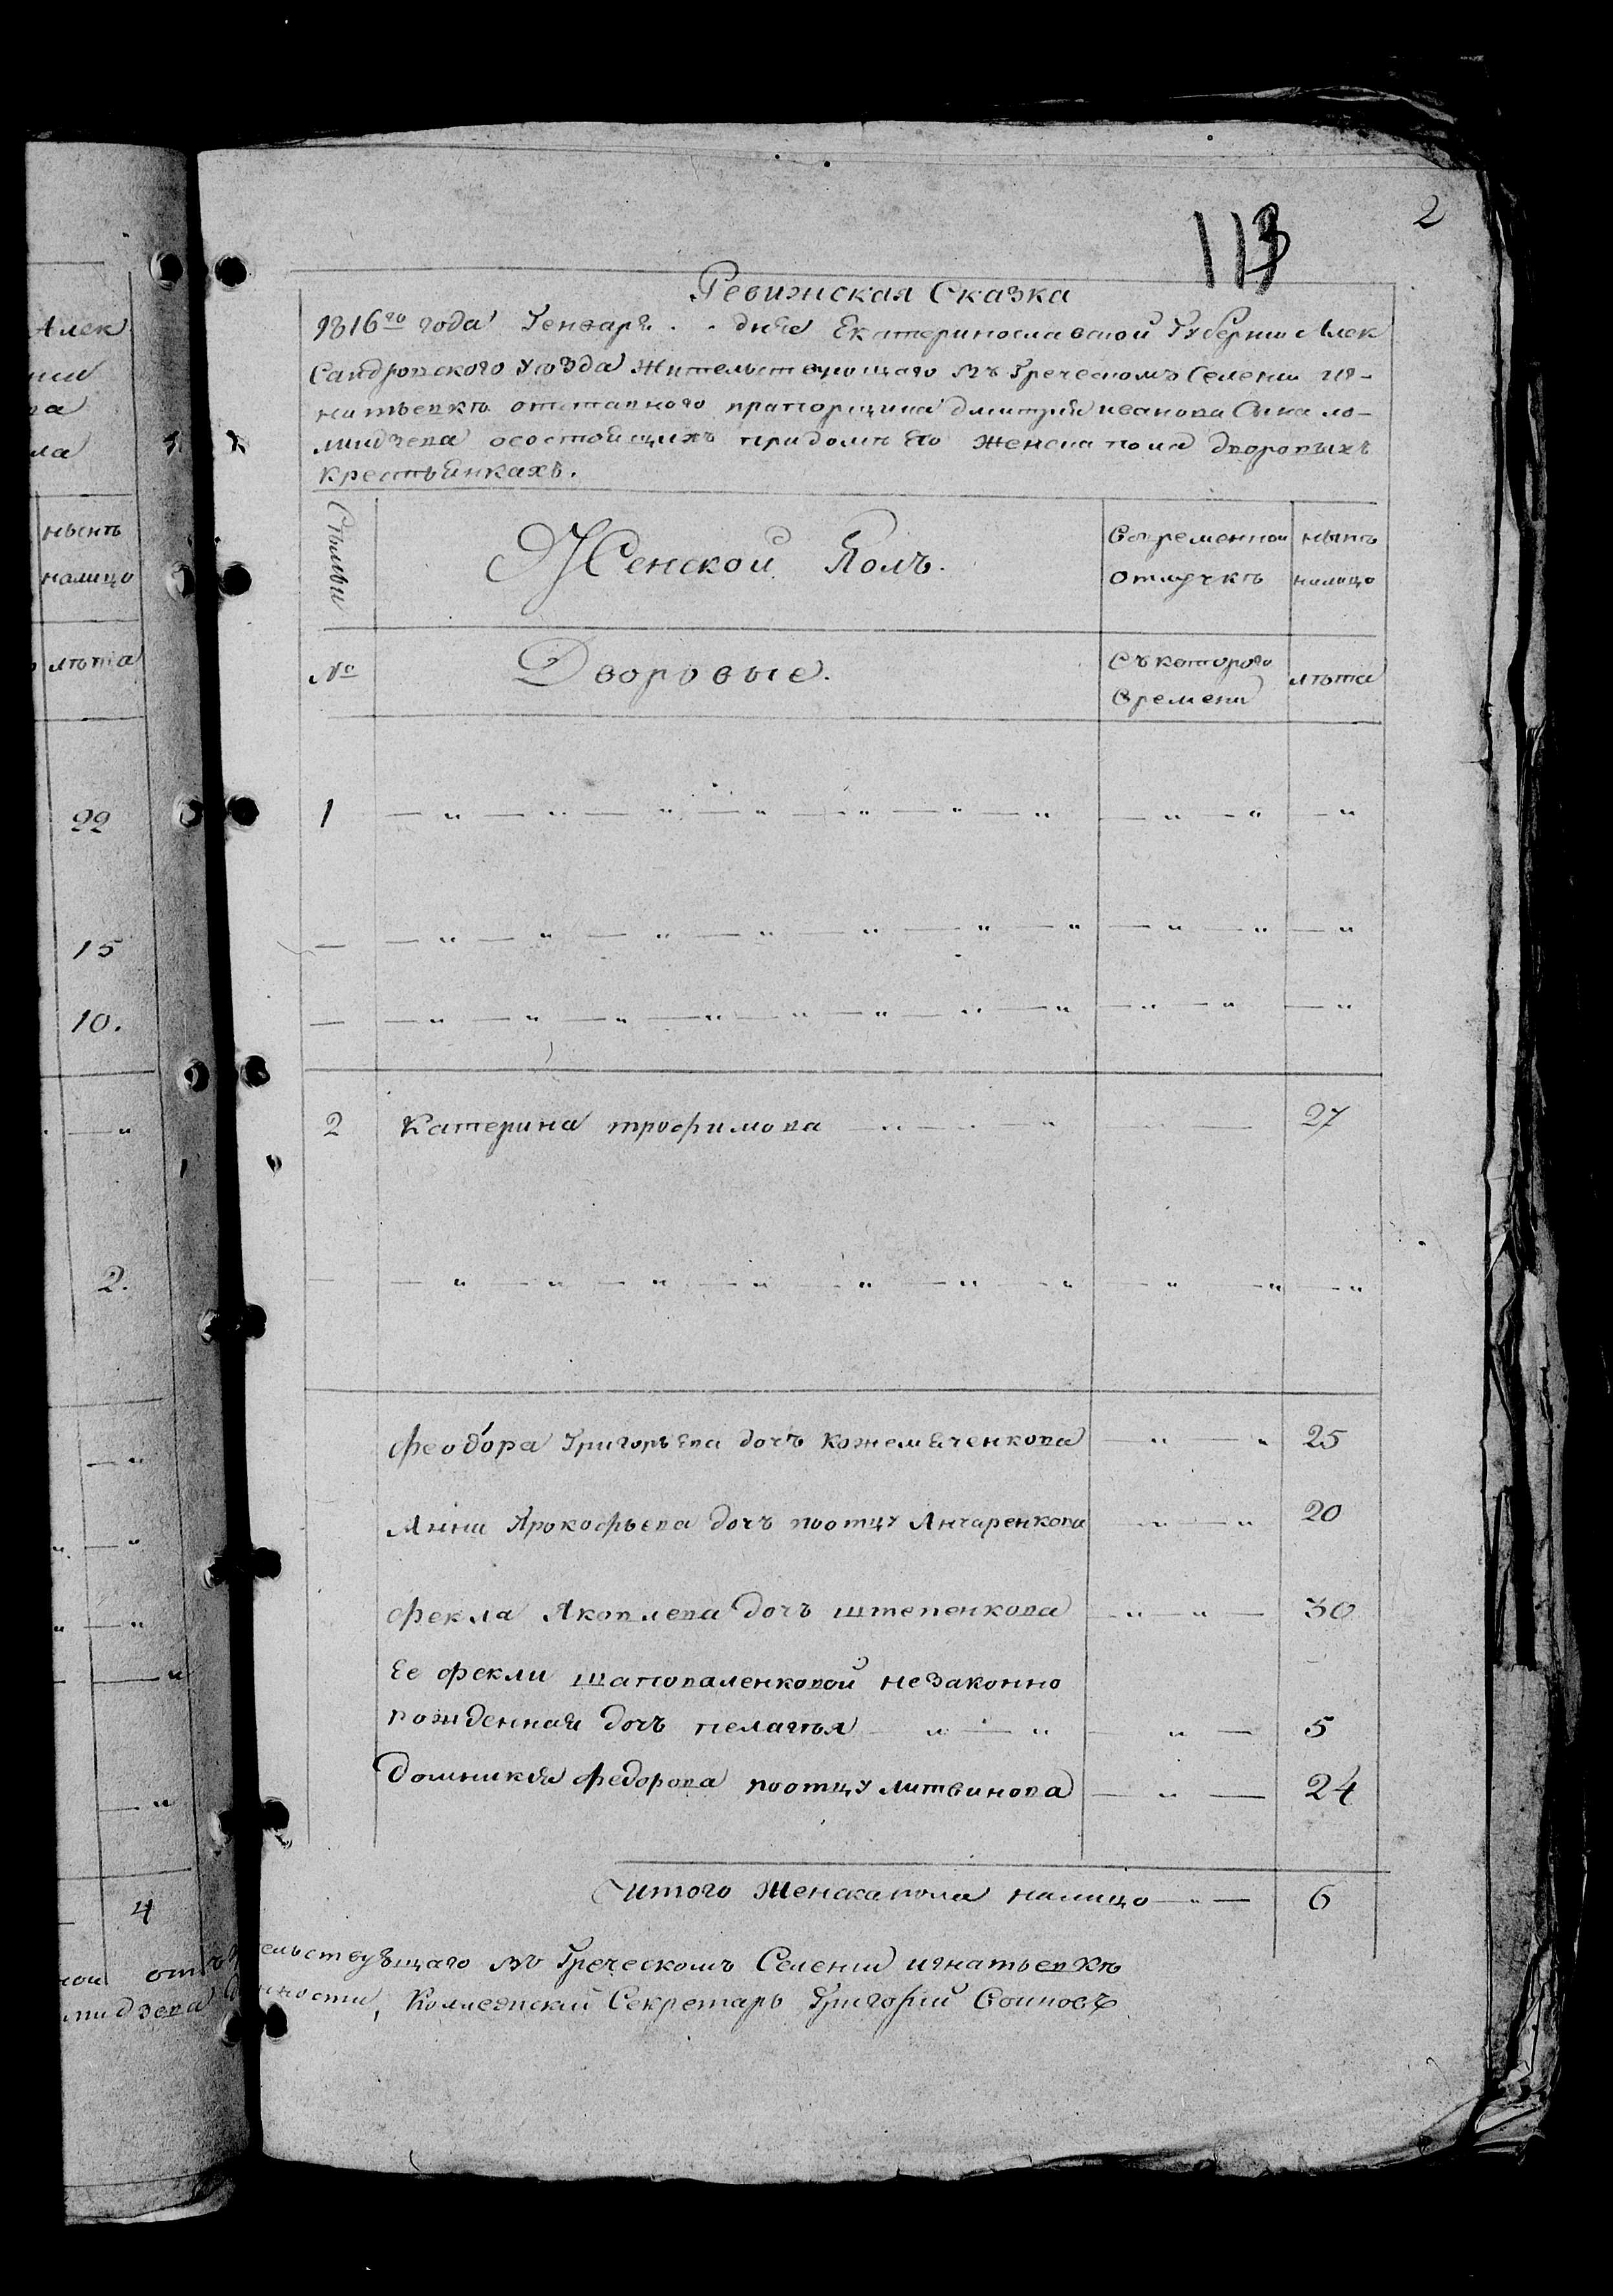 113
2
Ревижская Сказка
1816го года Генваря . . дня Екатеринославской Губернии Алек
сандровского уезда жительствующаго въ Греческомъ Селении иг-
натьевкѣ отставного прапорщика дмитрия иванова Сына ло-
мидзева осостоящихъ придомѣ Его женска пола дворовыхъ
крестьянкахъ.
Женской Полъ.
Вовременной отлучкѣ
нынѣ налицо
№
Дворовые.
Съ которого времени
лѣта
1
2 Катерина трофимова 27
феодора Григорьева дочъ кожемяченкова 25
Анна Прокофьева дочъ поотцу Анчаренкова 20
фекла Яковлева дочъ штепенкова 30
Ее фекли шаповаленковой незаконно
рожденная дочъ пелагъя 5
домникия федорова поотцу литвинова 24
итого женска пола налицо 6
ельствующаго въ Греческомъ Селении игнатьевкѣ
Коллежский Секретарь Григорий
Алек
ла
нынѣ
налицо
лѣта
22
15
10.
2.
4